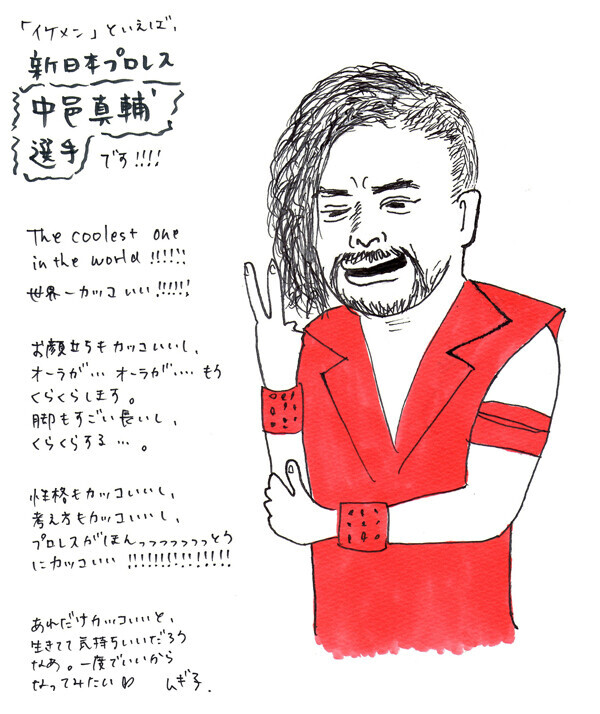 「イケメン」といえば、
新日本プロレス
中邑真輔
選手です!!!!
The coolest one
in the world !!!!!!
世界一カッコいい!!!!!!
お顔立ちもカッコいいし、
オーラが… オーラが…. もう
くらくらします。
脚もすごい長いし、
くらくらする …。
性格もカッコいいし、
考え方もカッコいいし、
プロレスがほんっっっっっっっとう
にカッコいい !!!!!!!!!!!!!!!
あれだけカッコいいと、
生きてて気持ちいいだろう
なあ。一度でいいから
なってみたい♡ むぎ子.